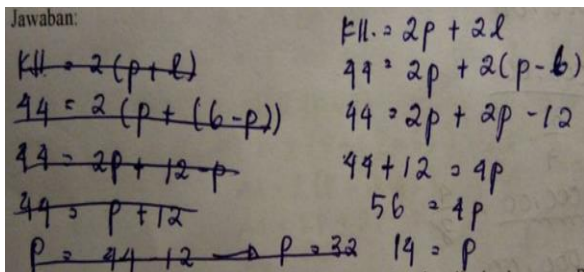 Jawaban:
Kll = 2(p+l)
44 = 2(p+(6-p))
44 = 2p + 12 - p
44 = p + 12
p = 44 - 12 → p = 32
Kll. = 2p + 2l
44 = 2p + 2(p-6)
44 = 2p + 2p - 12
44 + 12 = 4p
56 = 4p
14 = p